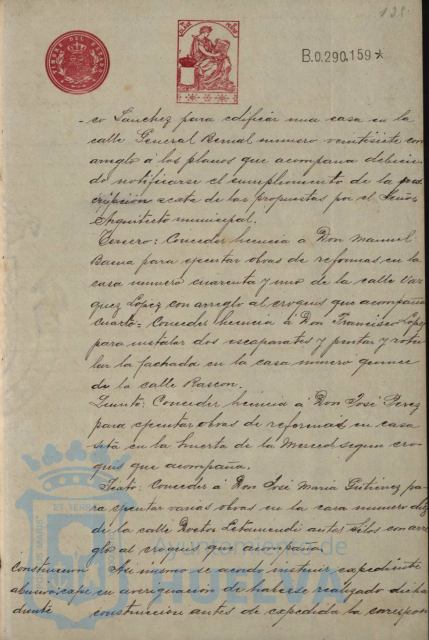 128.
TIMBRE DEL ESTADO
B.0.290.159*
-co Sanchez para edificar una casa en la
calle General Bernal numero veintisiete con
arreglo á los planos que acompaña debien
do notificarse el cumplimiento de la
cripcion sexta de las propuestas por el Señor
Arquitecto municipal.
Tercero: Conceder licencia á Don Manuel
Baena para ejecutar obras de reformas en la
casa numero cuarenta y uno de la calle Vaz
quez Lopez con arreglo al croquis que acompaña
Cuarto= Conceder licencia á Don Francisco Lopez
para instalar dos escaparates y pintar y rotu
lar la fachada en la casa numero quince
de la calle Rascon.
Quinto: Conceder licencia á Don José Perez
para ejecutar obras de reformas en casa
sita en la huerta de la Merced segun cro
quis que acompaña.
Sexto: Conceder á Don José Maria Gutierrez pa
ra ejecutar varias obras en la casa numero diez
de la calle Doctor Letamendi antes Silos con arre
glo al croquis que acompaña
Construccion Asi mismo se acordó instruir expediente
en averiguacion de haberse realizado dicha
construccion antes de expedida la correspon
diente
Ayuntamiento de
HUELVA